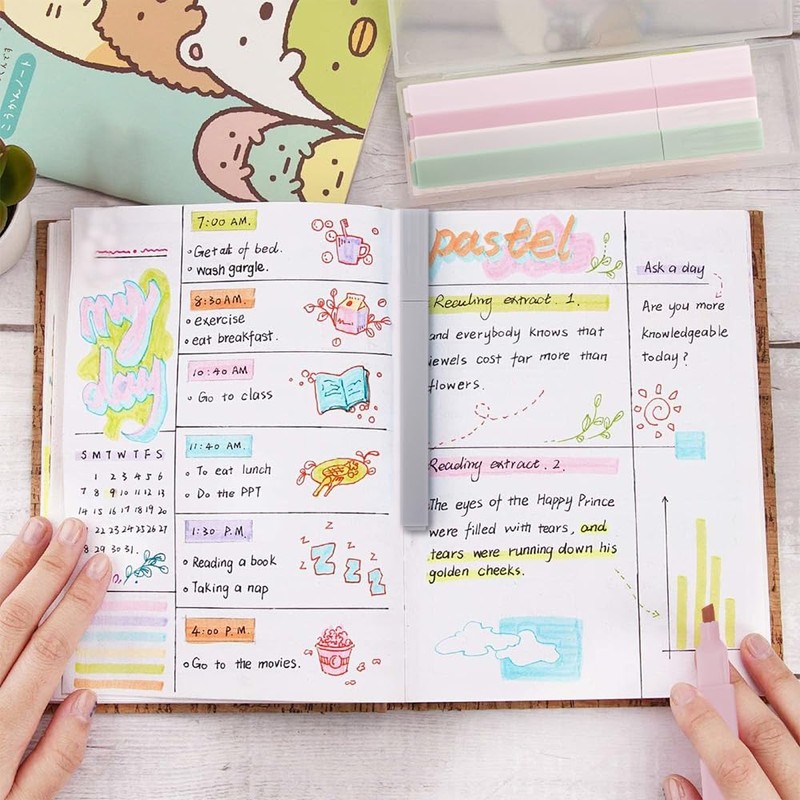 こうかんノート
my
day
S M T W T F S
1 2 3 4 5 6
7 8 9 10 11 12 13
14 15 16 17 18 19 20
22 23 24 25 26 27
29 30 31.
7:00 AM.
Get of bed.
wash gargle.
8:30 AM.
exercise
eat breakfast.
10:40 AM
Go to class
11:40 AM.
To eat lunch
Do the PPT
1:30 P.M.
Reading a book
Taking a nap
z
z
z
Z
Z
Z
4:00 P.M.
Go to the movies.
pastel
Reading extract. 1.
and everybody knows that
jewels cost far more than
flowers.
Reading extract. 2.
The eyes of the Happy Prince
were filled with tears, and
tears were running down his
golden cheeks.
Ask a day
Are you more
knowledgeable
today?